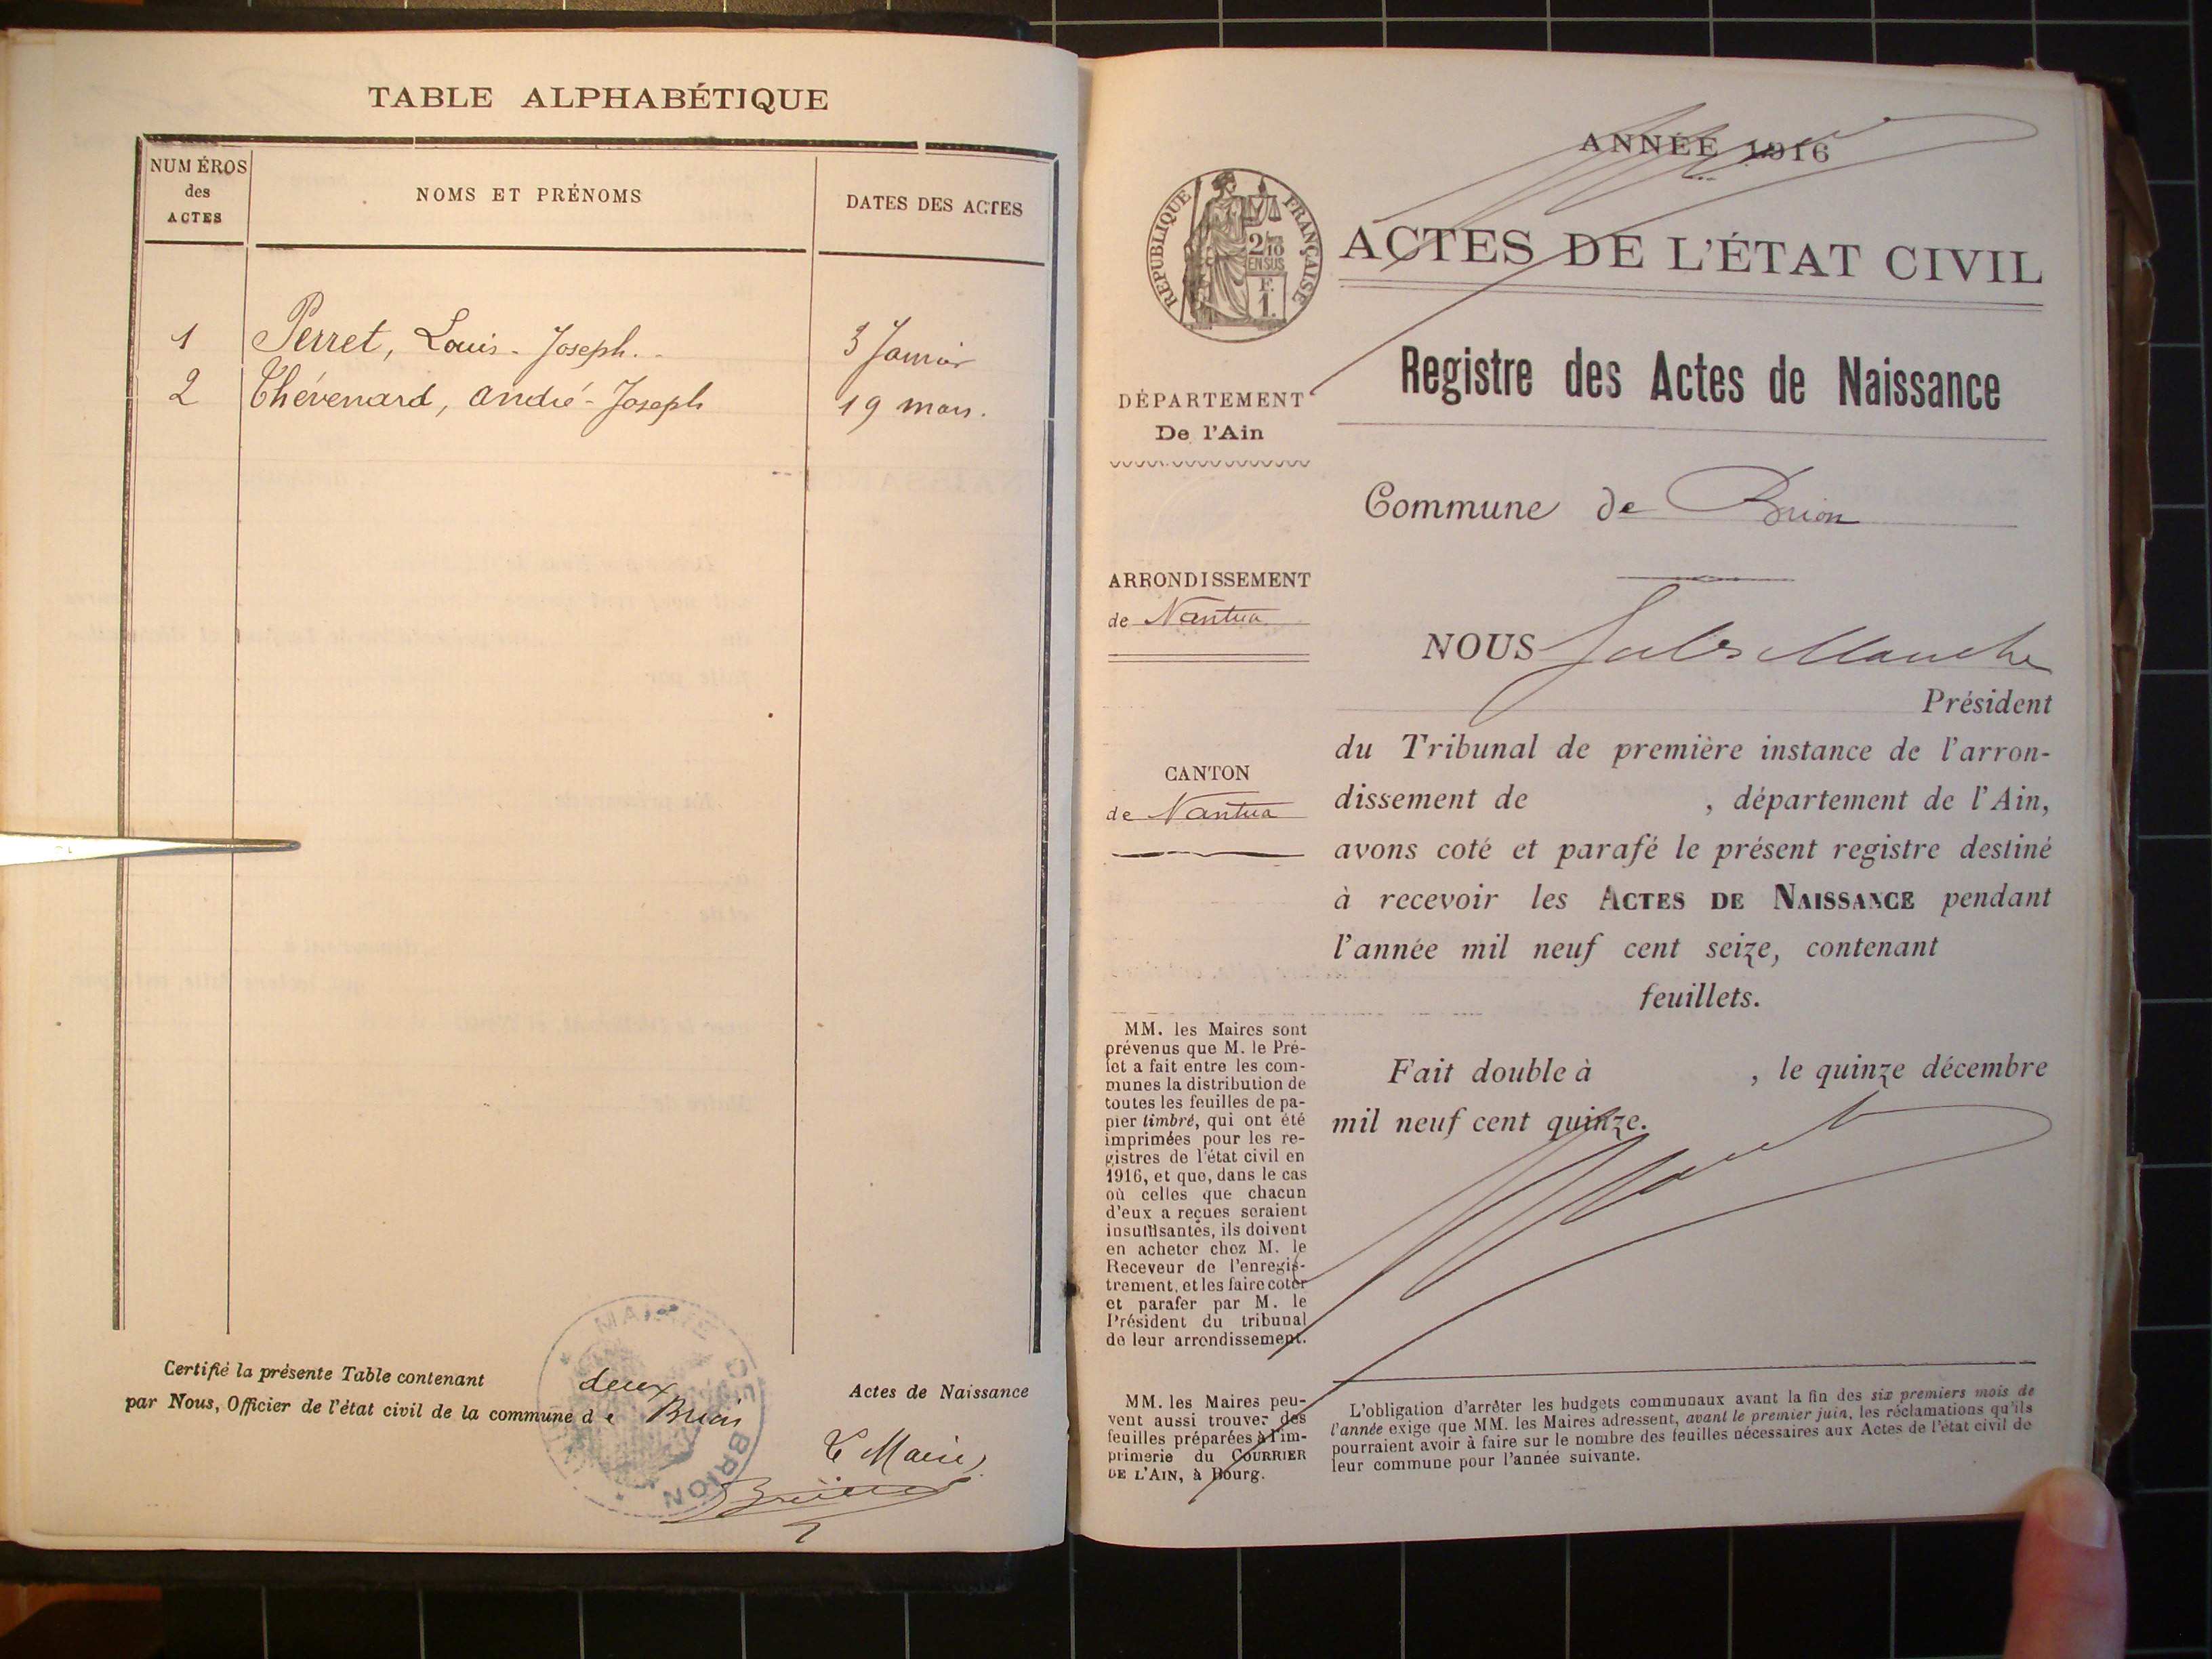 TABLE ALPHABÉTIQUE
NUMÉROS
des
ACTES
NOMS ET PRÉNOMS
DATES DES ACTES
1 Perret, Louis-Joseph. 3 Janvier
2 Thévenard, André-Joseph 19 mars.
Certifié la présente Table contenant deux Actes de Naissance
par Nous, Officier de l'état civil de la commune de Brion
Le Maire,
MAIRIE DE BRION
ANNÉE 1916
RÉPUBLIQUE FRANÇAISE
2/10
EN SUS
F.
1.
ACTES DE L'ÉTAT CIVIL
Registre des Actes de Naissance
DÉPARTEMENT
De l'Ain
Commune de Brion
ARRONDISSEMENT
de Nantua
CANTON
de Nantua
NOUS Jules
Président
du Tribunal de première instance de l'arron-
dissement de , département de l'Ain,
avons coté et parafé le présent registre destiné
à recevoir les ACTES DE NAISSANCE pendant
l'année mil neuf cent seize, contenant
feuillets.
Fait double à , le quinze décembre
mil neuf cent quinze.
MM. les Maires sont
prévenus que M. le Pré-
fet a fait entre les com-
munes la distribution de
toutes les feuilles de pa-
pier timbré, qui ont été
imprimées pour les re-
gistres de l'état civil en
1916, et que, dans le cas
où celles que chacun
d'eux a reçues seraient
insuffisantes, ils doivent
en acheter chez M. le
Receveur de l'enregis-
trement, et les faire coter
et parafer par M. le
Président du tribunal
de leur arrondissement.
MM. les Maires peu-
vent aussi trouver des
feuilles préparées à l'im-
primerie du COURRIER
DE L'AIN, à Bourg.
L'obligation d'arrêter les budgets communaux avant la fin des six premiers mois de
l'année exige que MM. les Maires adressent, avant le premier juin, les réclamations qu'ils
pourraient avoir à faire sur le nombre des feuilles nécessaires aux Actes de l'état civil de
leur commune pour l'année suivante.